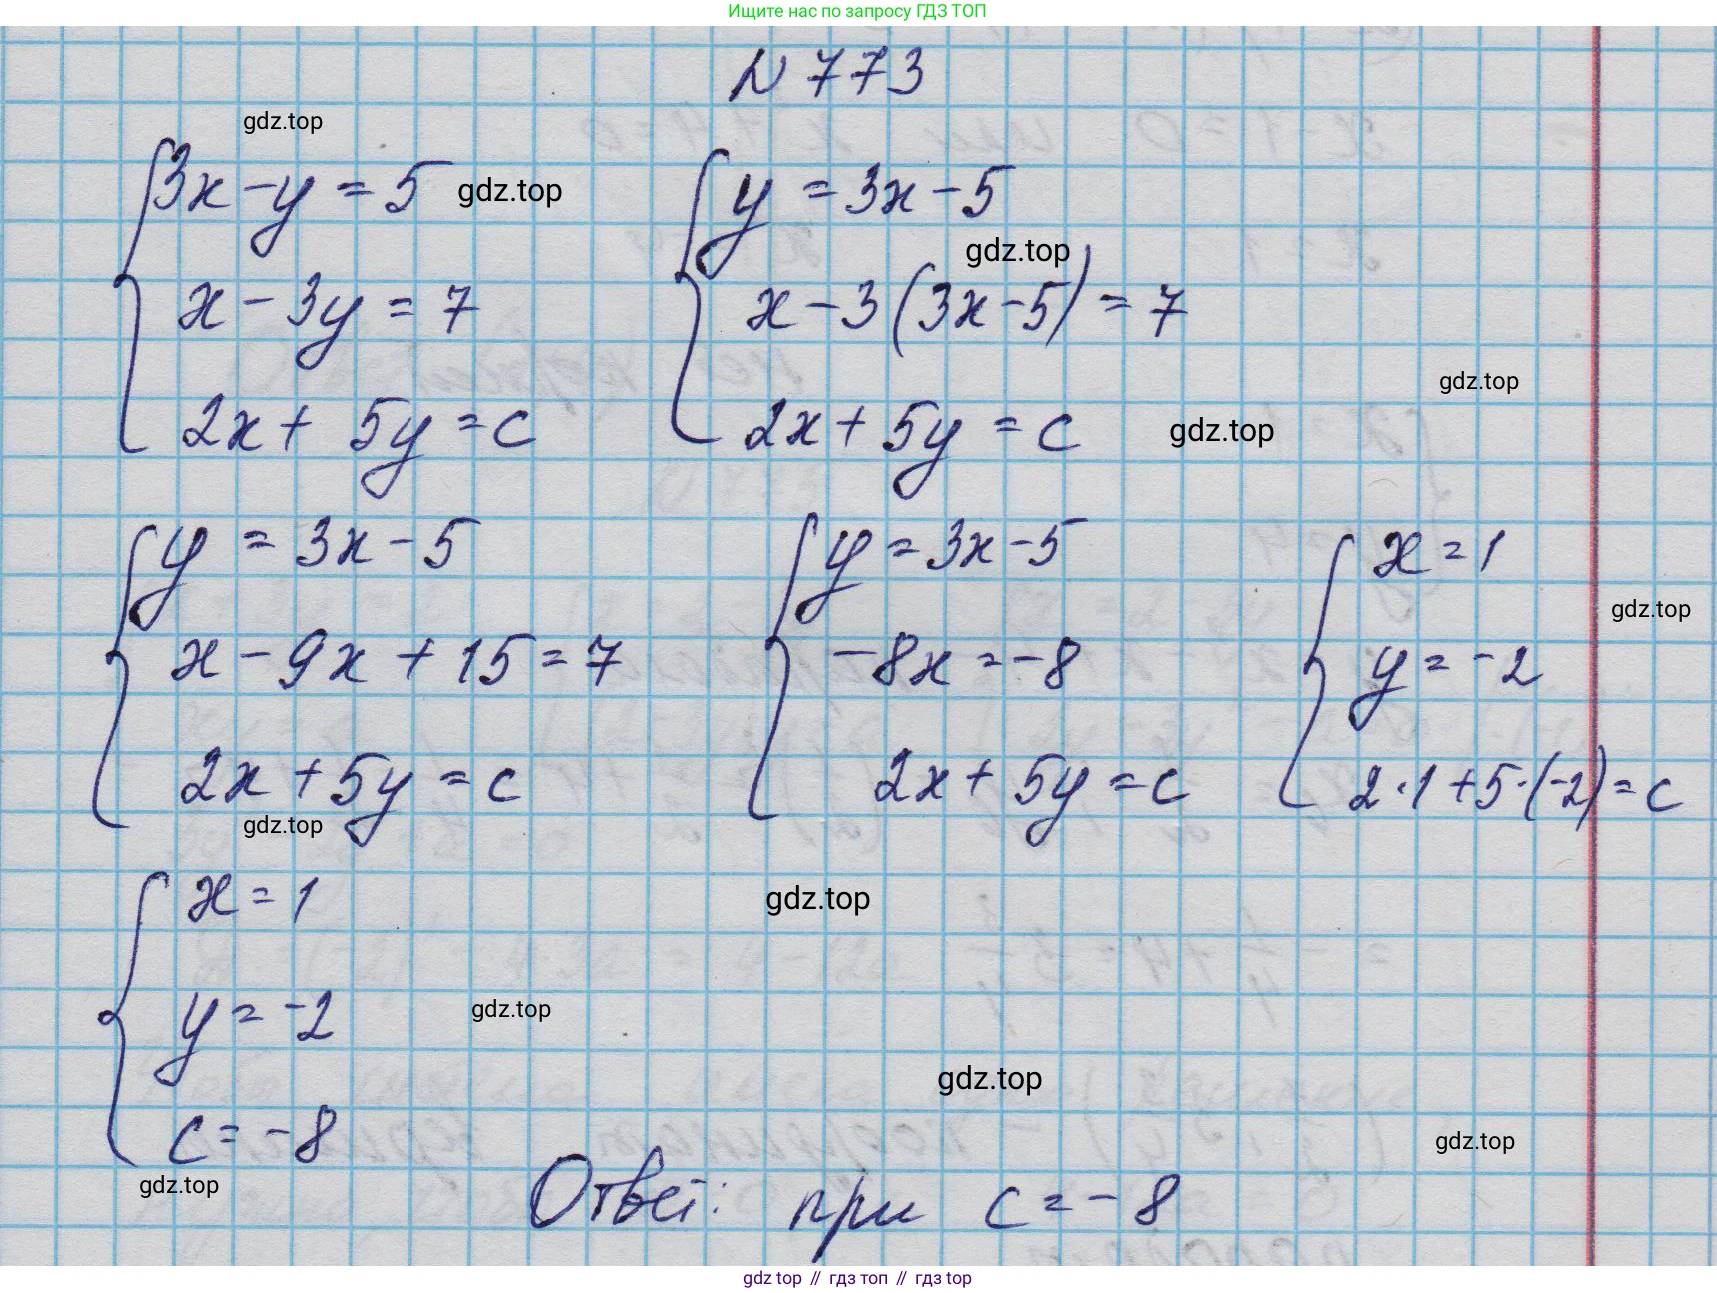 Ищите нас по запросу ГДЗ ТОП
N 773
gdz.top
3x - y = 5 gdz.top
x - 3y = 7
2x + 5y = c
y = 3x - 5
gdz.top
x - 3(3x - 5) = 7
2x + 5y = c gdz.top
gdz.top
y = 3x - 5
x - 9x + 15 = 7
2x + 5y = c
gdz.top
y = 3x - 5
-8x = -8
2x + 5y = c
x = 1
gdz.top
y = -2
2·1 + 5·(-2) = c
x = 1
y = -2
c = -8
gdz.top
gdz.top
gdz.top
gdz.top
gdz.top
Ответ: при c = -8
gdz top // гдз топ // гдз top